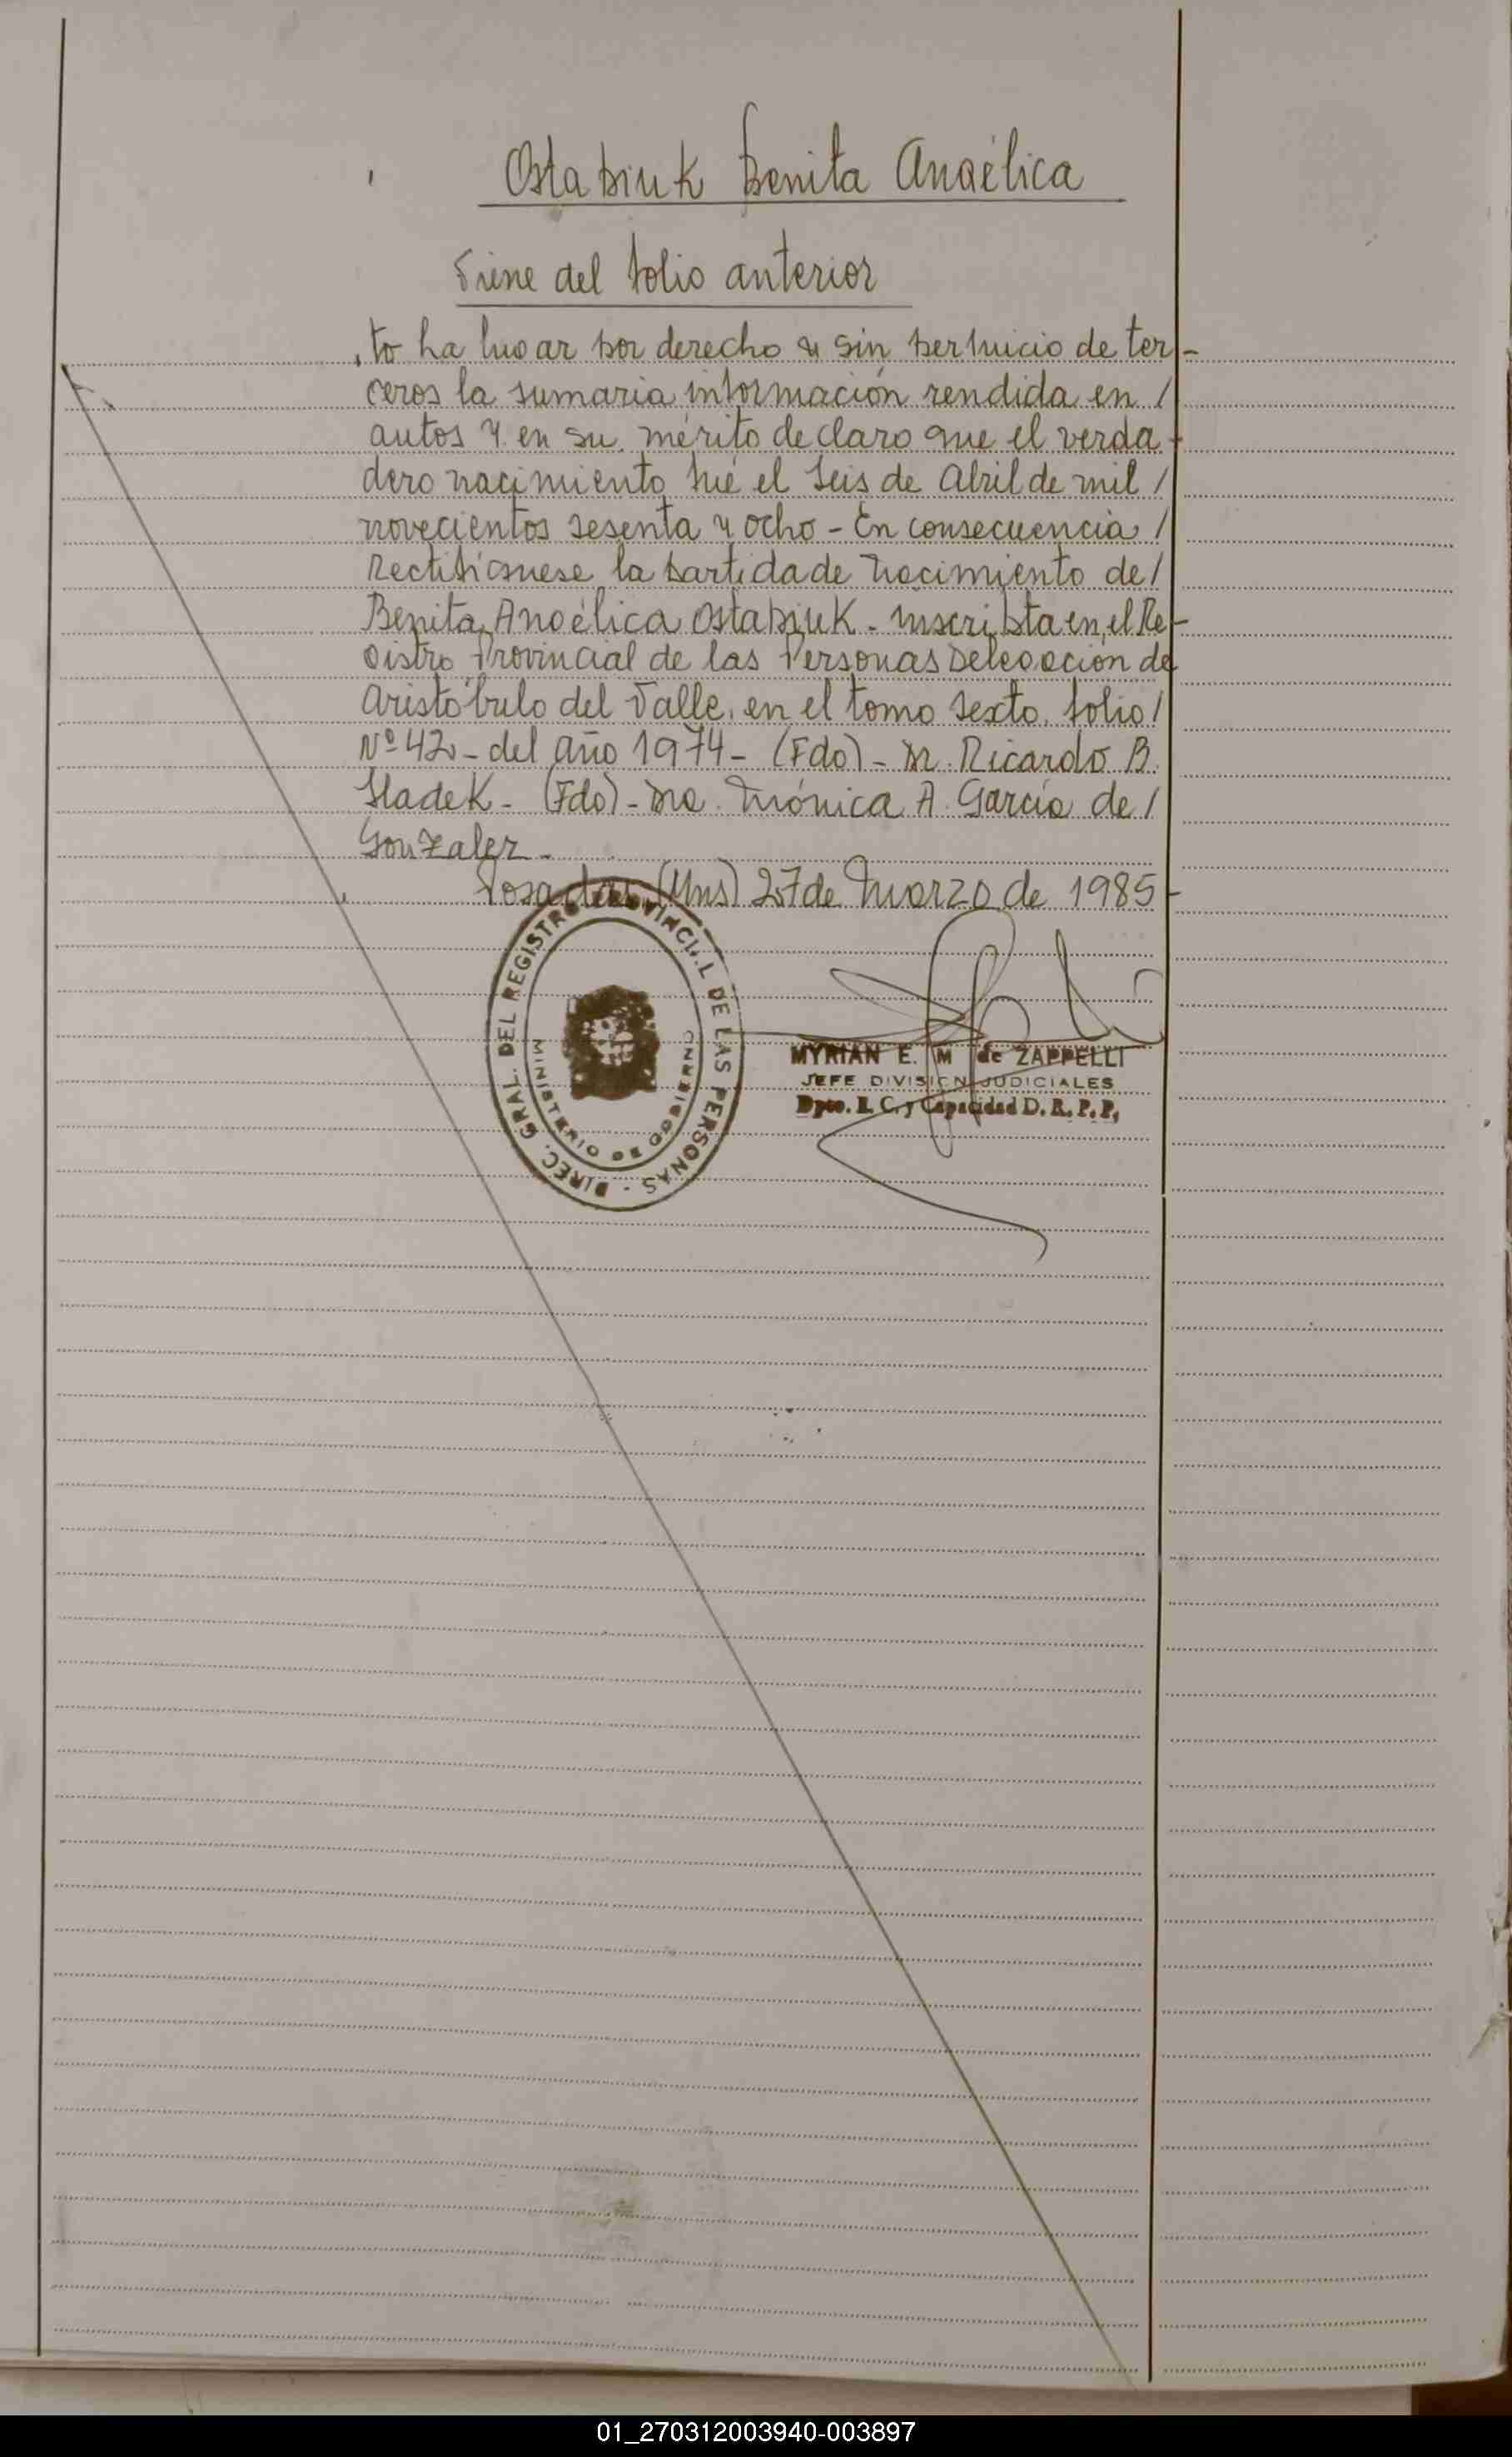 Ostapiuk Benita Angélica
Viene del folio anterior
to ha lugar por derecho y sin perjuicio de ter-
ceros la sumaria información rendida en /
autos y en su mérito declaro que el verda-
dero nacimiento fué el seis de Abril de mil /
novecientos sesenta y ocho - En consecuencia /
Rectifíquese la partida de nacimiento de /
Benita Angélica Ostapiuk - inscripta en el Re-
gistro Provincial de las Personas Delegación de
Aristóbulo del Valle, en el tomo sexto, folio /
Nº 42 - del año 1974 - (Fdo) - Dr. Ricardo B.
Sladek - (Fdo) - Dra. Mónica A. García de /
Gonzalez -
Posadas (Mns) 27 de Marzo de 1985 -
DIREC. GRAL. DEL REGISTRO PROVINCIAL DE LAS PERSONAS -
MINISTERIO DE GOBIERNO
MYRIAN E. M de ZAPPELLI
JEFE DIVISION JUDICIALES
Dpto. E. C. y Capacidad D. R. P. P.
01_270312003940-003897